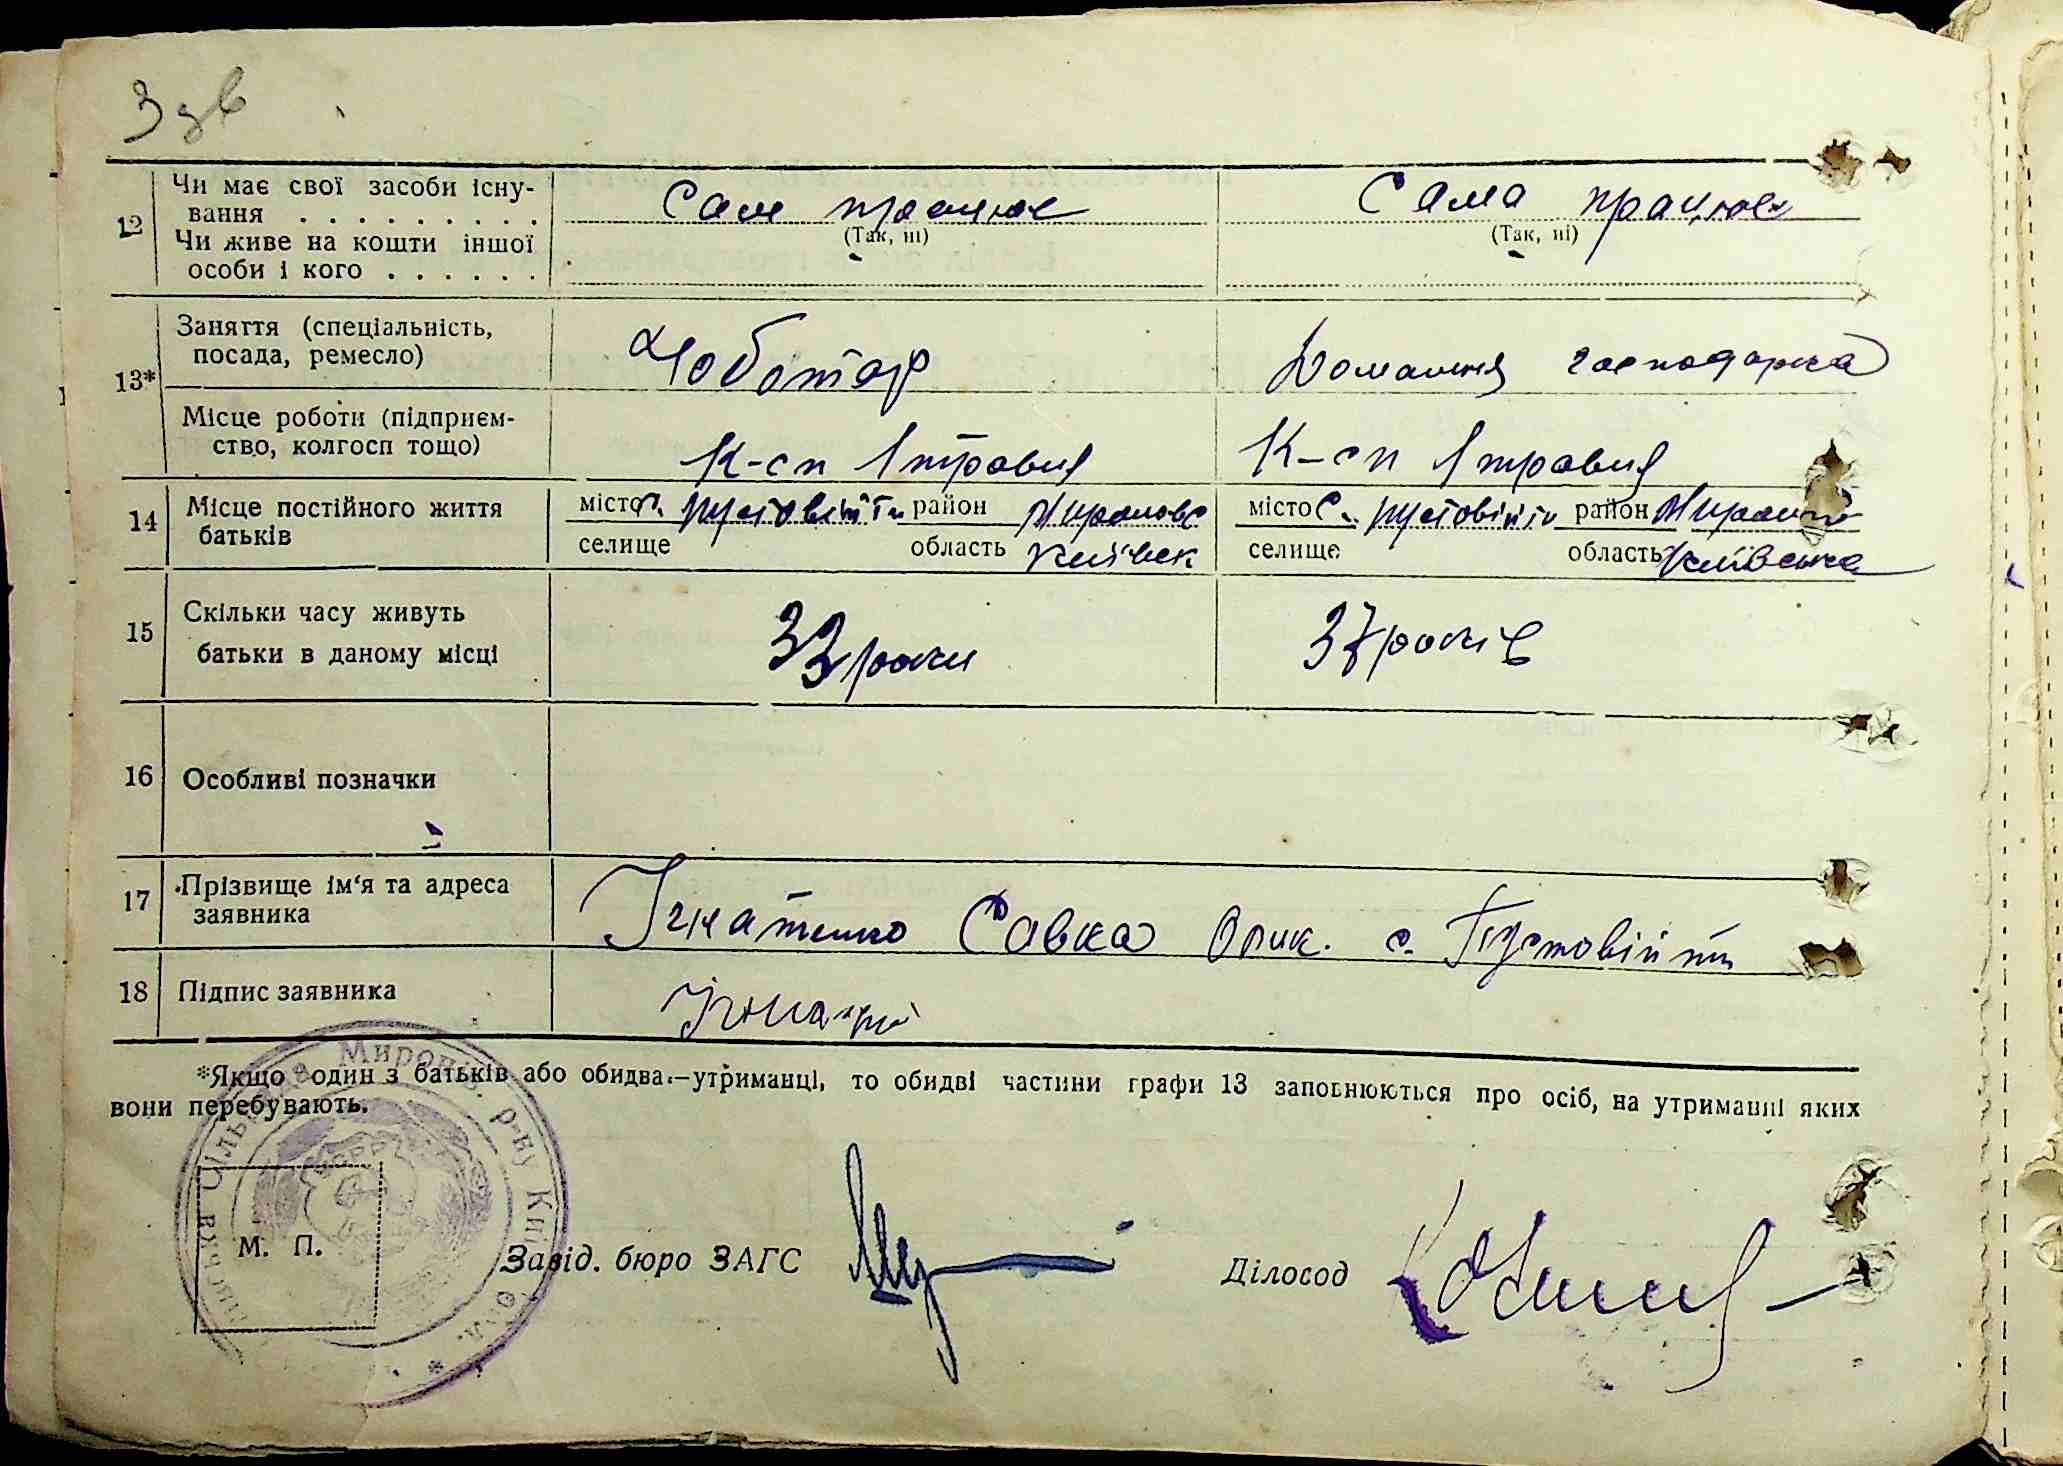 З дв
12 Чи має свої засоби існу-
вання . . . . . . . . . Сам працює Сама працює
(Так, ні) (Так, ні)
Чи живе на кошти іншої
особи і кого . . . . . .
13* Заняття (спеціальність,
посада, ремесло) Чоботар Домашня господарка
Місце роботи (підприєм-
ство, колгосп тощо) К-сп 1 травня К-сп 1 травня
14 Місце постійного життя місто с. Пустовійти район Миронівс місто с. Пустовійти район
батьків селище область Київськ селище область Київська
15 Скільки часу живуть
батьки в даному місці 33 роки 37 років
16 Особливі позначки
17 Прізвище ім'я та адреса
заявника Ігнатенко Савка с. Пустовійти
18 Підпис заявника
*Якщо один з батьків або обидва—утриманці, то обидві частини графи 13 заповнюються про осіб, на утриманні яких
вони перебувають.
Миронів. р-ну Киї обл.
УСРР
М. П.
Завід. бюро ЗАГС Діловод